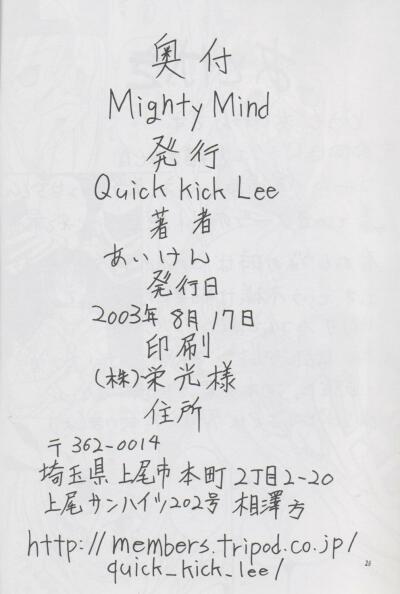 奥付
Mighty Mind
発行
Quick kick Lee
著者
あいけん
発行日
2003年8月17日
印刷
(株)栄光様
住所
〒362-0014
埼玉県上尾市本町2丁目2-20
上尾サンハイツ202号 相澤方
http://members.tripod.co.jp/
quick_kick_lee/